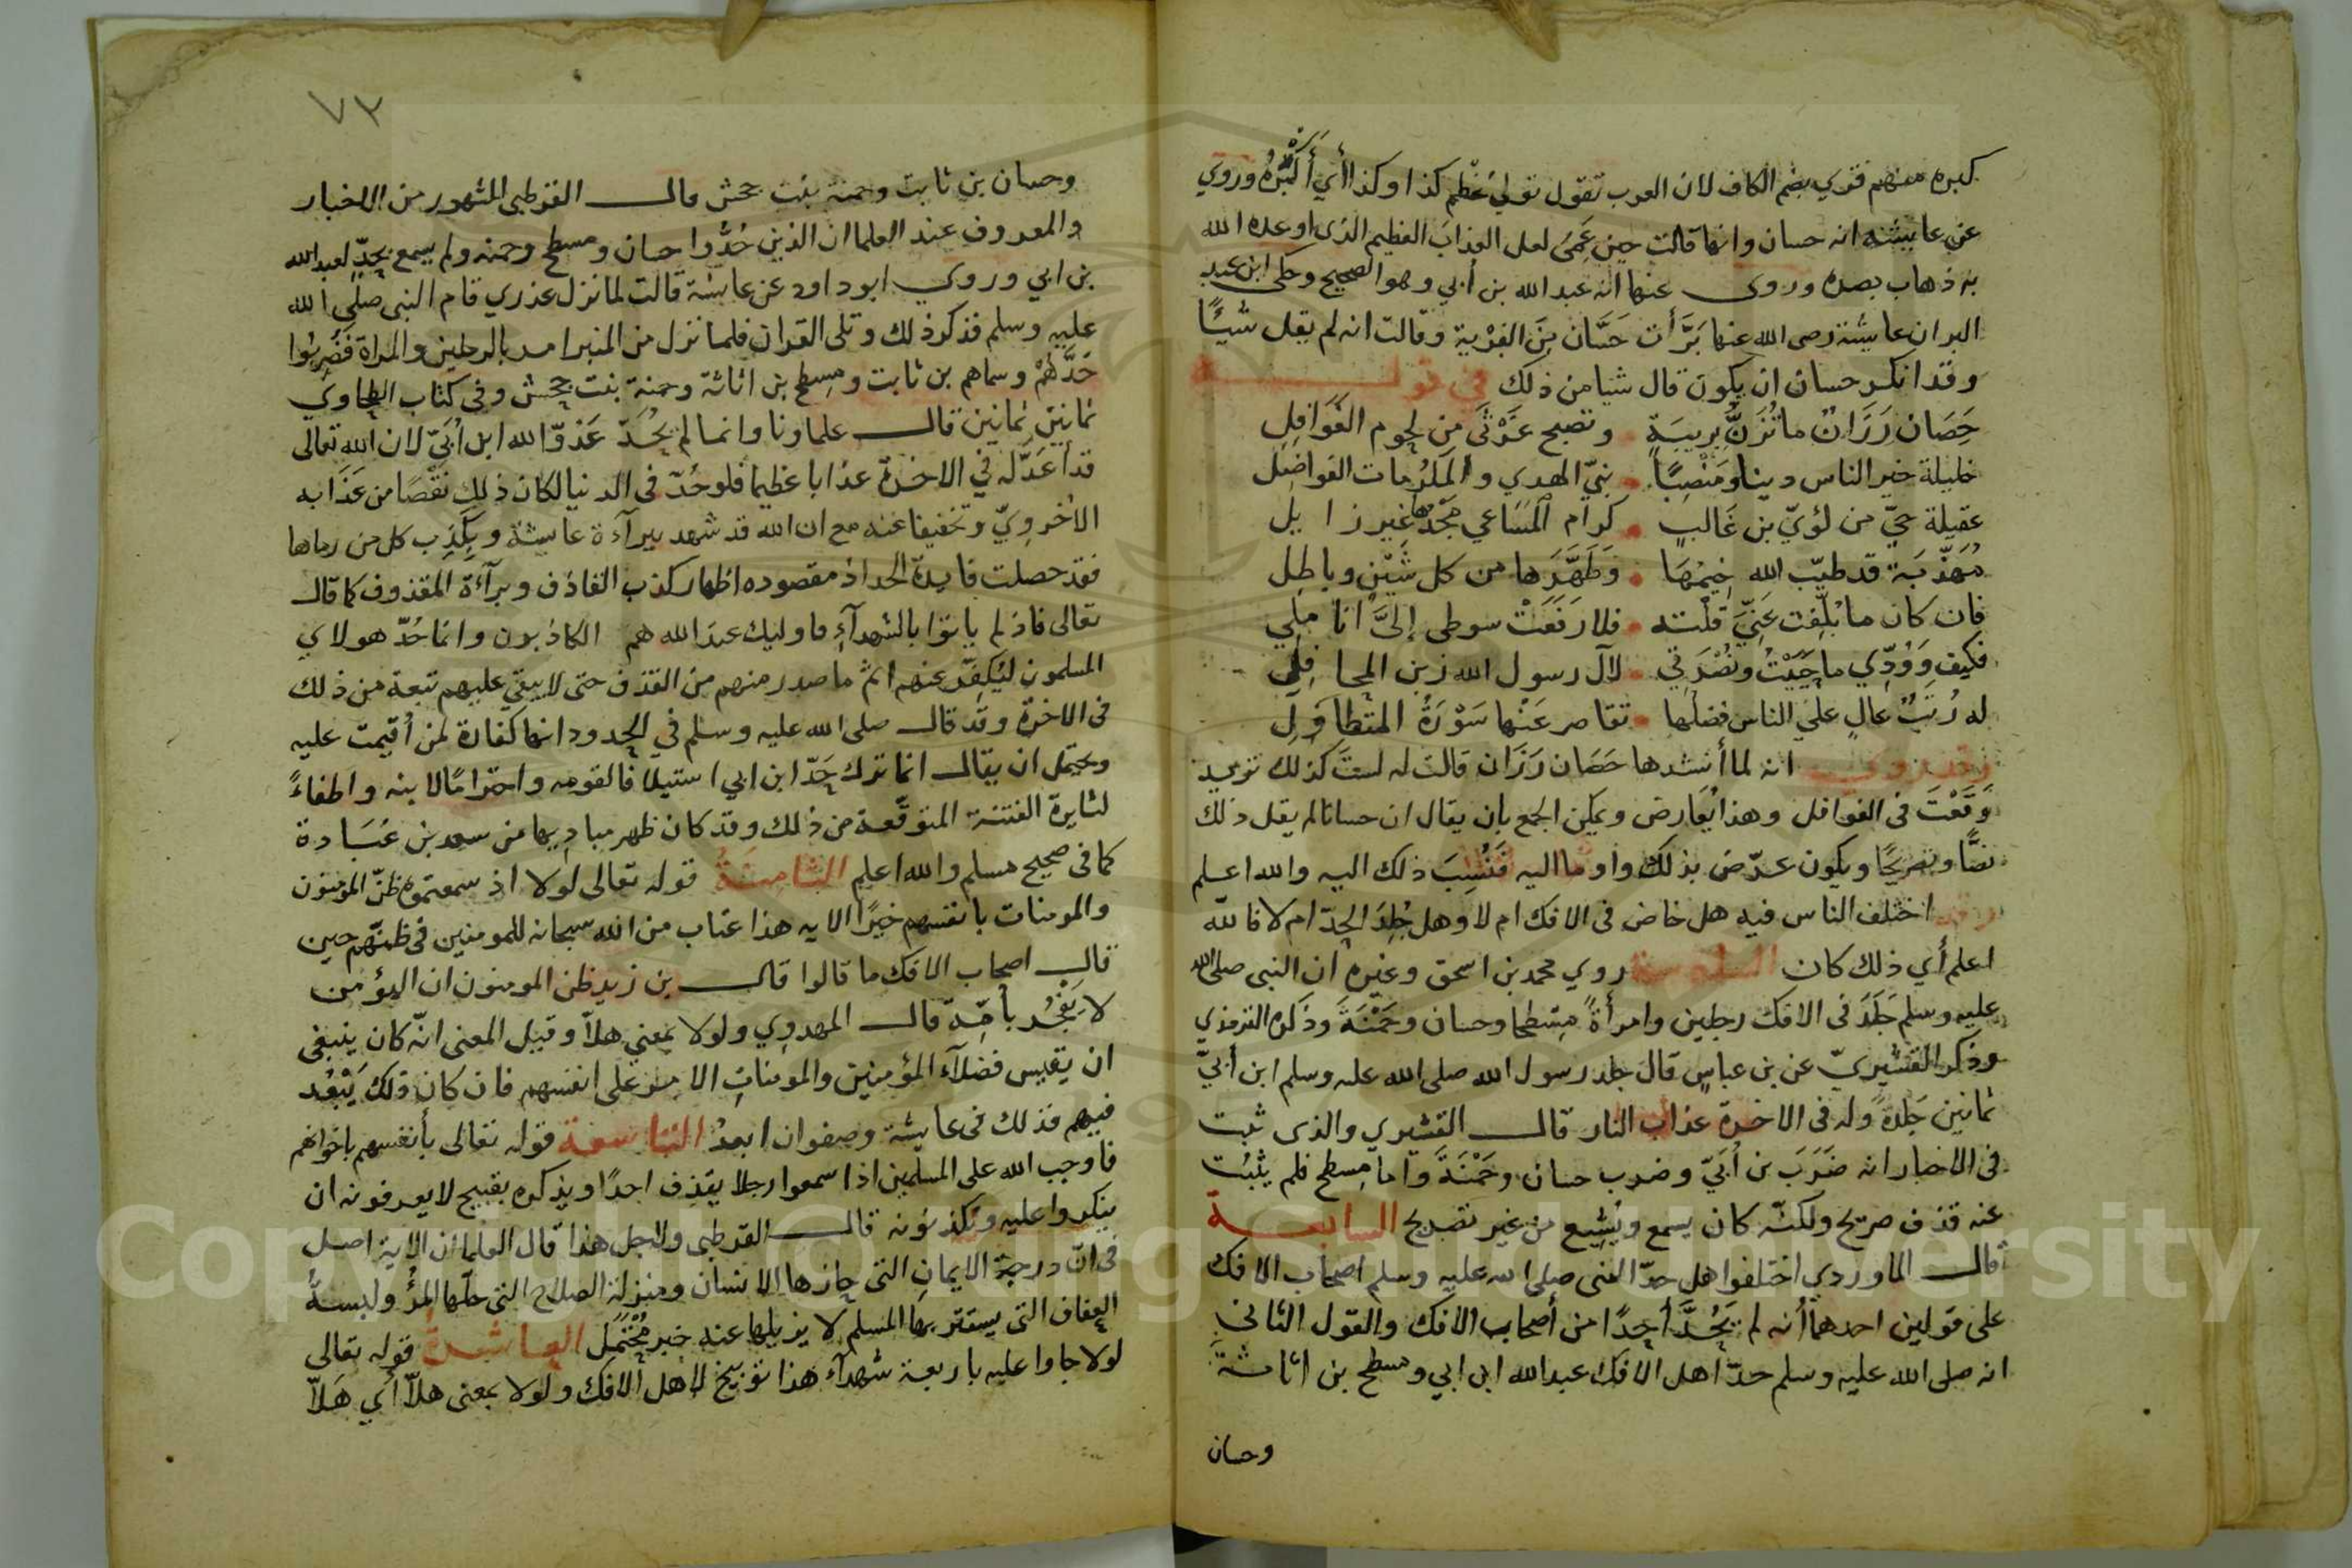 كبره منهم قري بضم الكاف لان العرب تقول تولي عُظْم كذا وكذا أي أَكْبَرُهُ وروي
عن عايشه انه حسان وانها قالت حين عَمِيَ لعل العذاب العظيم الذي اوعده الله
به ذهاب بصره وروى عنها انه عبد الله بن أبي وهو الصحيح وحكى ابن عبد
البر ان عايشة رضي الله عنها بَرَّأَت حَسَّان مِنَ الفِرْية وقالت انه لم يقل شيئًا
وقد انكر حسان ان يكون قال شيا من ذلك في قوله
حَصَان رَزَانٌ ما تُزَنُّ بِرِيبَةٍ وتصبح غَرْثَى مِن لحوم الغَوَافِلِ
خليلة خير الناس دينا ومَنْصِبًا نبيّ الهدي والمكرُمات الفواضِل
عقيلة حيّ من لؤيّ بن غَالبٍ كرام المَسَاعي مَجْدُها غير زايل
مُهَذَّبَة قد طيّب الله خِيمَهَا وَطَهَّرَها من كل شَيْنٍ وباطِل
فان كان ما بُلِّغت عَنِّيَ قلْته فلا رَفَعَتْ سوطى إلىَّ انا مِلِي
فكيف وَوُدِّي ما حَيَيْتُ ونُصْرَتي لآل رسول الله زين المحافِلِ
له رُتَبٌ عالٍ علي الناس فضلها تقاصر عَنْها سَوْرَةُ المتطاوِل
وقد روي انه لما أنشدها حَصَان رَزَان قالت له لستَ كذلك تريد
وَقَعْتَ في الغوافل وهذا يُعَارض ويمكن الجمع بان يقال ان حسانا لم يقل ذلك
نصًّا وتصريحًا ويكون عرّض بذلك واوما اليه فَنُسِبَ ذلك اليه والله اعلم
وقد اختلف الناس فيه هل خاض في الافك ام لا وهل جُلِدَ الحدّ ام لا فالله
اعلم أي ذلك كان السادسة روي محمد بن اسحق وغيره ان النبى صلى الله
عليه وسلم جَلَدَ في الافك رجلين وامرأةً مِسْطَحا وحسان وحَمْنَةَ وذكره الترمذي
وذكر القشيريّ عن بن عباسٍ قال جلد رسول الله صلى الله عليه وسلم ابن أبيّ
ثمانين جَلدةً وله في الاخرة عذاب النار قال القشيري والذى ثبت
في الاخبار انه ضَرَبَ بن أُبَيّ وضرب حسان وحَمْنَةَ واما مِسطح فلم يثْبُت
عنه قذف صريح ولكنّه كان يسمع ويُشِيع من غير تصريح السابعة
قال الماوردي اختلفوا هل حدّ النبى صلى الله عليه وسلم اصحاب الافك
على قولين احدهما أنه لم يَحُدَّ أحدًا من أصحاب الافك والقول الثاني
انه صلى الله عليه وسلم حدّ اهل الافك عبد الله ابن ابي ومسطح بن اثاثة
وحسان
٧٣
وحسان بن ثابت وحمنة بنت جحش قال القرطبى المشهور من الاخبار
والمعروف عند العلما ان الذين حُدُّوا حسان ومسطح وحمنه ولم يسمع بحدٍّ لعبد الله
بن ابي وروي ابو داود عن عائشة قالت لما نزل عذري قام النبى صلى الله
عليه وسلم فذكر ذلك وتلى القران فلما نزل من المنبر امر بالرجلين والمراة فضُرِبُوا
حَدَّهُمْ وسماهم بن ثابت ومِسطح بن اثاثة وحمنة بنت جحش وفي كتاب الطحاوي
ثمانين ثمانين قال علماونا وانما لم يُحَدّ عَدُوّ الله ابن أُبَيّ لان الله تعالى
قد أَعَدَّ له في الاخرة عذابا عظيما فلو حُدّ في الدنيا لكان ذلك نَقْصًا من عَذَابه
الاخرويّ وتخفيفا عنه مع ان الله قد شهد ببرآءة عايشة وبكَذِب كل من رماها
فقد حصلت فايدة الحد اذ مقصوده اظهار كذب القاذف وبرآءة المقذوف كما قال
تعالى فاذ لم ياتوا بالشهدآءِ فاوليك عند الله هم الكاذبون وانما حُدّ هولاي
المسلمون ليُكفَّرَ عنهم اثم ما صدر منهم من القذف حتى لا يبقي عليهم تبعة من ذلك
في الاخرة وقد قال صلى الله عليه وسلم في الحدود انها كفارة لمن أُقيمت عليه
ويحتمل ان يقال انما ترك حَدّ ابن ابي استيلافا لقومه واحترامًا لابنه واطفاءً
لثايرة الفتنة المتوقَّعة من ذلك وقد كان ظهر مباديها من سعد بن عُبَادة
كما في صحيح مسلم والله اعلم الثامنة قوله تعالى لولا اذ سمعتموه ظنّ المومنون
والمومنات بانفسهم خيرًا الايه هذا عتاب من الله سبحانه للمومنين في ظنّهم حين
قال اصحاب الافك ما قالوا قال بن زيد ظن المومنون ان المؤمن
لا يَفْجُر بأمّه قال المهدوي ولولا بمعني هلاّ وقيل المعنى انّه كان ينبغى
ان يقيس فضلآء المؤمنين والمومناتِ الامر على انفسهم فان كان ذلك يَبْعُد
فيهم فذلك في عايشة وصفوان ابعدُ التاسعة قوله تعالى بأنفسهم باخوانهم
فاوجب الله على المسلمين اذا سمعوا رجلا يقذِف احدًا ويذكره بقبيح لا يعرفونه ان
ينكروا عليه ويكذبونه قال القرطبى ولاجل هذا قال العلما ان الاية اصل
في انّ درجة الايمانِ التى حازها الانسان ومنزلة الصلاح التى حلّها المؤُ ولبسةُ
العفاف التى يستتر بها المسلم لا يزيلها عنه خبر مُحْتَمَل العاشرة قوله تعالى
لولا جاوا عليه باربعة شهدآء هذا توبيخ لاهل الافك ولولا بمعنى هلاّ أي هَلاّ
Copyright © King Saud University